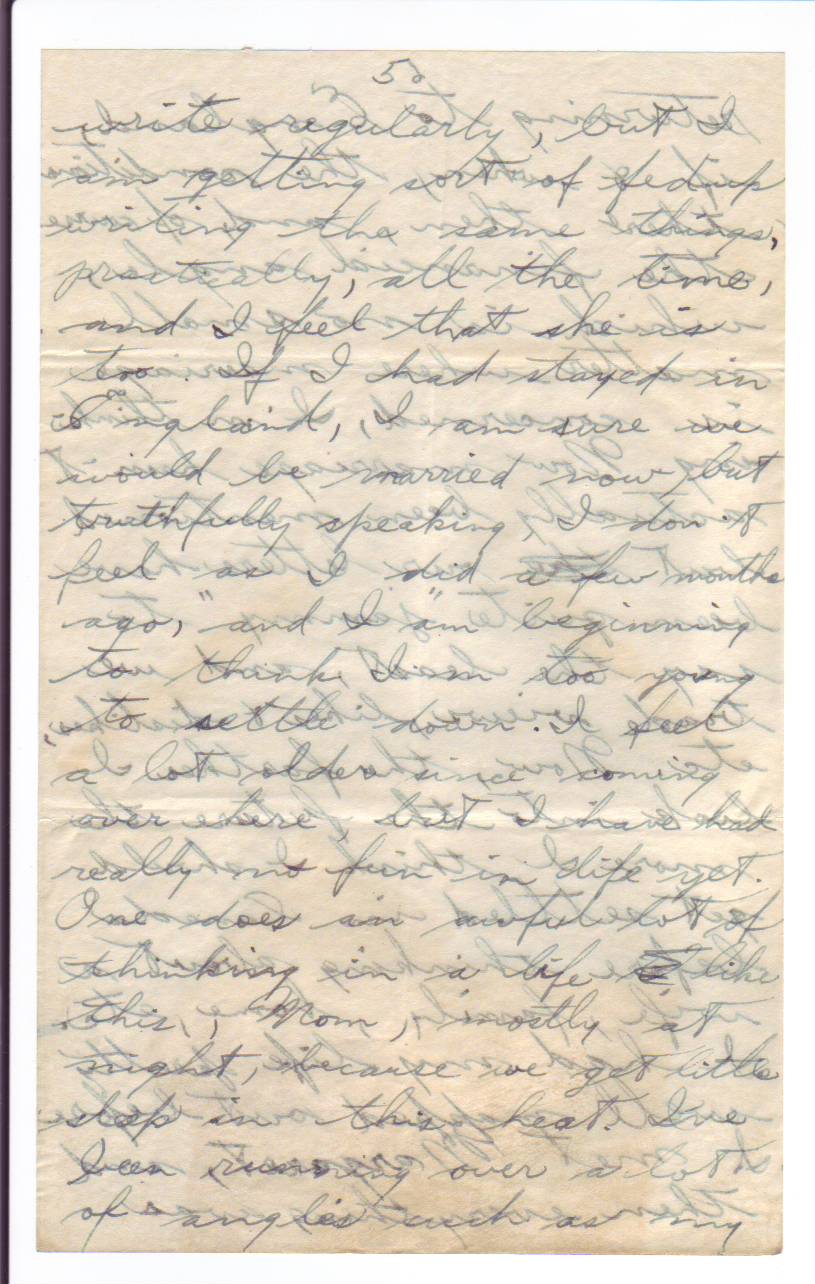 5.
write regularly, but I
am getting sort of fed up
writing the same things,
practically, all the time,
and I feel that she is
too. If I had stayed in
England, I am sure we
would be married now but
truthfully speaking, I don't
feel as I did a few months
ago, "and I am beginning
to think I am too young
to settle down. I feel
a lot older since coming
over here, but I have had
really no fun in life yet.
One does an awful lot of
thinking in a life like
this, Mom, mostly at
night, because we get little
sleep in this heat. I've
been running over a lot
of angles such as my